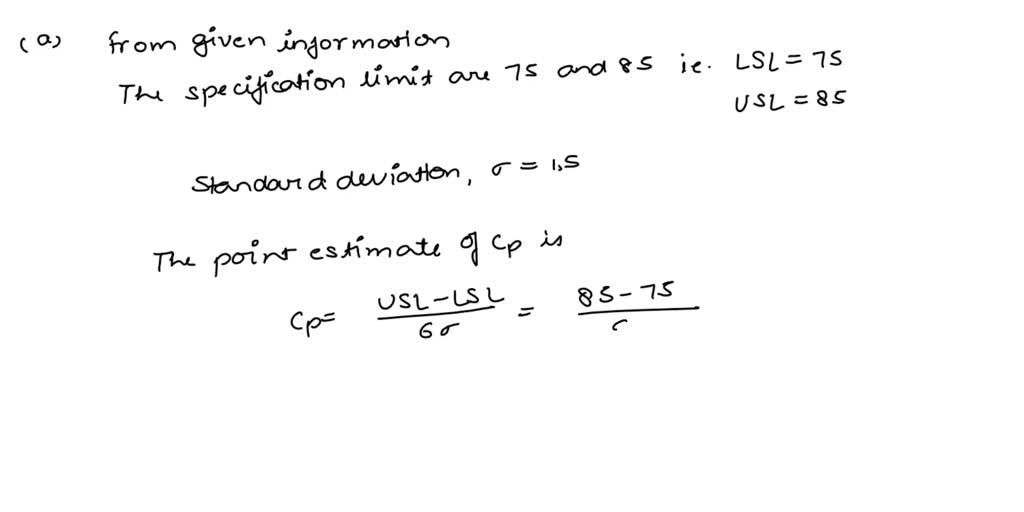 (a) From given information
The specification limit are 75 and 85 ie. LSL = 75
USL = 85
Standard deviation, σ = 1.5
The point estimate of Cp is
Cp = USL - LSL / 6σ = 85 - 75 /